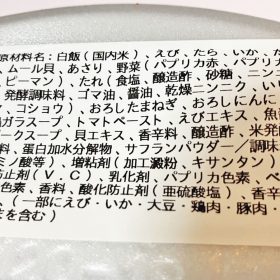 原材料名：白飯(国内米)、えび、たら、いか、た
、ムール貝、あさり、野菜(パプリカ赤、パプリカ
、ピーマン)、たれ(食塩、醸造酢、砂糖、ニン
発酵調味料、ゴマ油、醤油、乾燥ニンニク、いり
、コショウ)、おろしたまねぎ、おろしにんにく
鶏ガラスープ、トマトペースト、エビエキス、魚醤
ークエキス、貝エキス、香辛料、醸造酢、米発
料、蛋白加水分解物、サフランパウダー／調味
ミノ酸等)、増粘剤(加工澱粉、キサンタン)
防止剤(V.C)、乳化剤、パプリカ色素、ベ
色素、香料、酸化防止剤(亜硫酸塩)、香辛
、(一部にえび・いか・大豆・鶏肉・豚肉・
を含む)